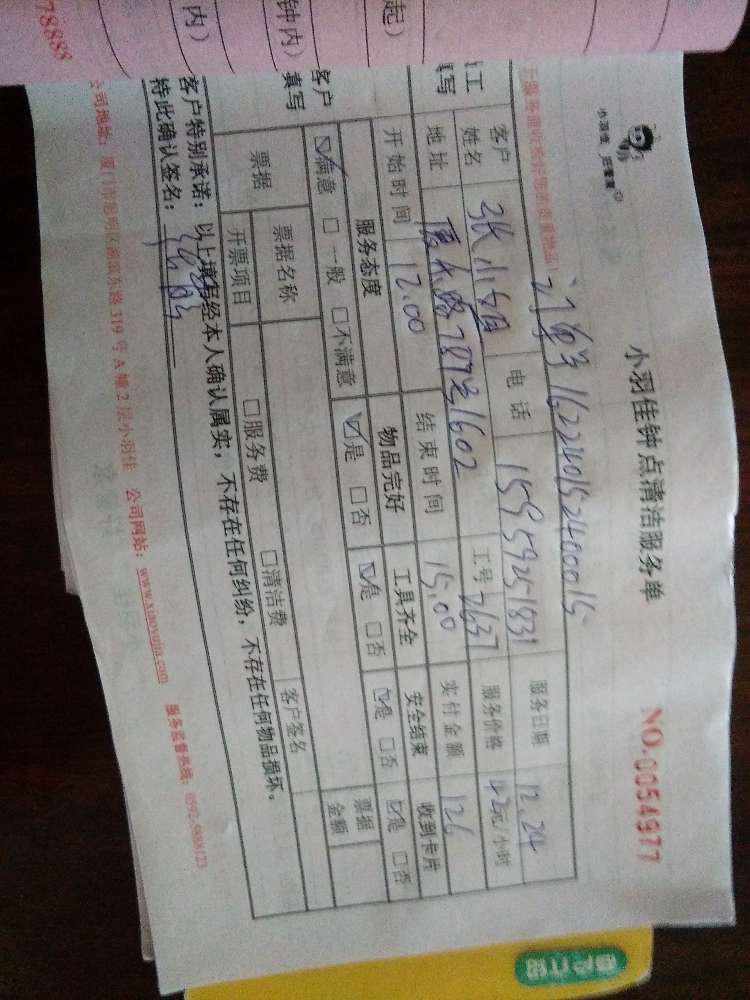 小羽佳钟点清洁服务单
NO.0054977
订单号 1622401524000015
客户姓名 张小姐 电话 15959251831 服务日期 12.24
地址 厦大路787号1602 工号 2637 服务价格 42元/小时
开始时间 12.00 结束时间 15.00 实付金额 126
服务态度 物品完好 工具齐全 安全结束 收到卡片
☑满意 □一般 □不满意 ☑是 □否 ☑是 □否 ☑是 □否 ☑是 □否
票据 票据名称 票据金额
开票项目 □服务费 □清洁费 客户签名
客户特别承诺：以上填写经本人确认属实，不存在任何纠纷，不存在任何物品损坏。
持此确认签名：
公司网站：www.xiaoyujia.com 服务监督热线：0592-5888123
78888
内）
钟内）
起）
填写
客户